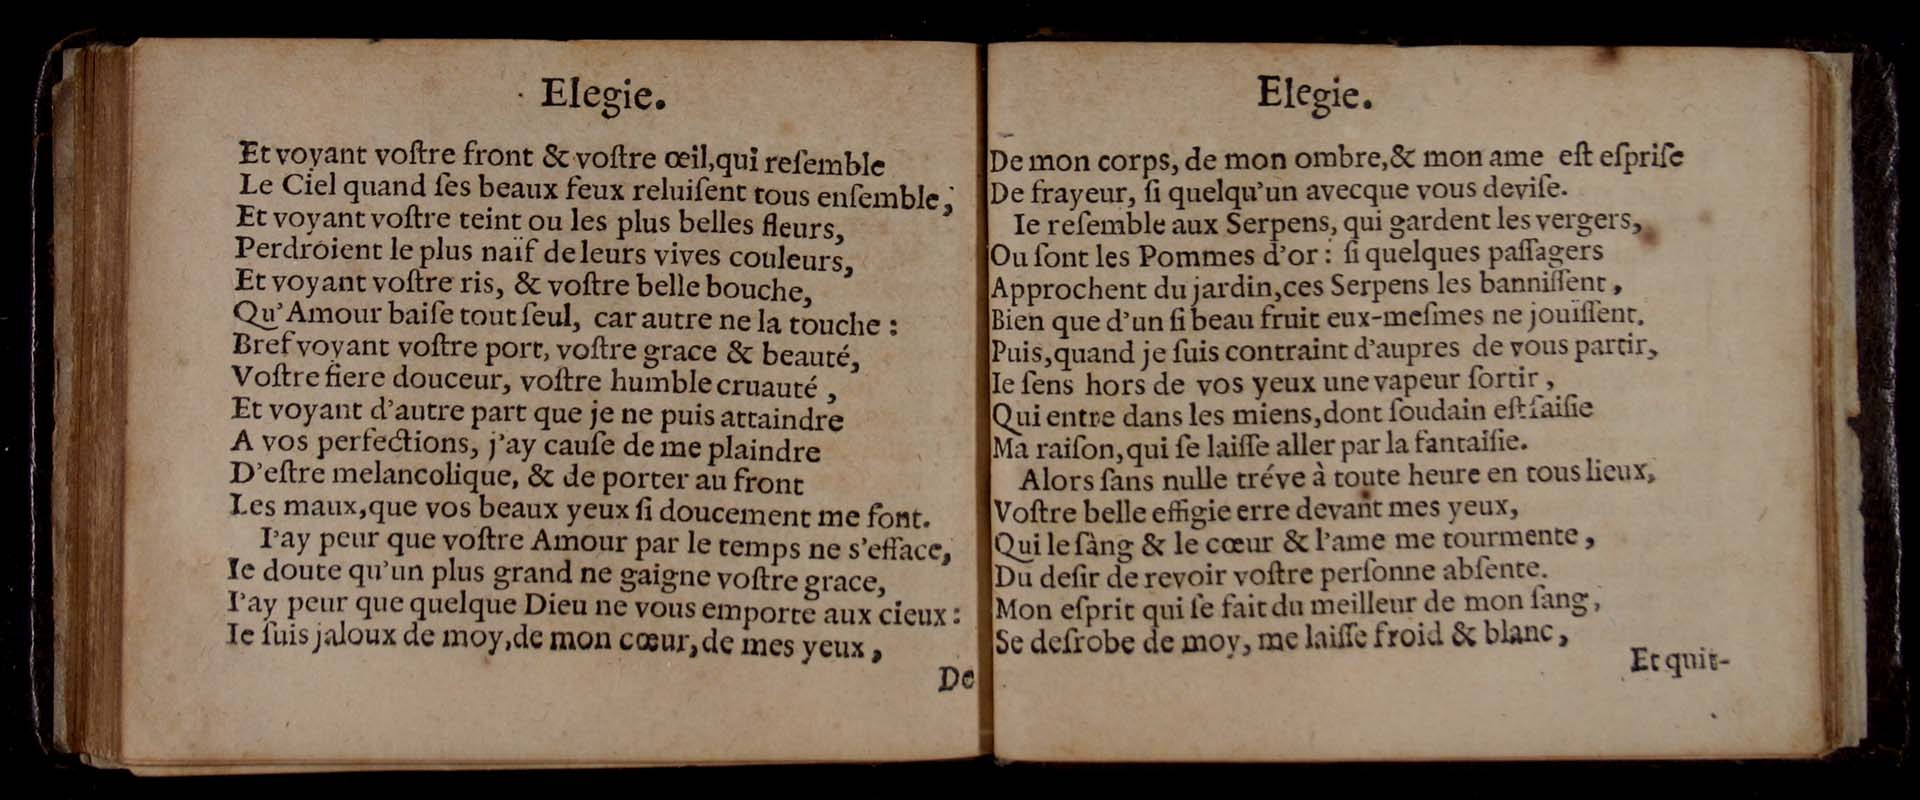 Elegie.
Et voyant voſtre front & voſtre œil,qui reſemble
Le Ciel quand ſes beaux feux reluiſent tous enſemble;
Et voyant voſtre teint ou les plus belles fleurs,
Perdroient le plus naïf de leurs vives couleurs,
Et voyant voſtre ris, & voſtre belle bouche,
Qu'Amour baiſe tout ſeul, car autre ne la touche :
Bref voyant voſtre port, voſtre grace & beauté,
Voſtre fiere douceur, voſtre humble cruauté ,
Et voyant d'autre part que je ne puis attaindre
A vos perfections, j'ay cauſe de me plaindre
D'eſtre melancolique, & de porter au front
Les maux,que vos beaux yeux ſi doucement me font.
I'ay peur que voſtre Amour par le temps ne s'efface,
Ie doute qu'un plus grand ne gaigne voſtre grace,
I'ay peur que quelque Dieu ne vous emporte aux cieux :
Ie ſuis jaloux de moy,de mon cœur,de mes yeux ,
De
Elegie.
De mon corps, de mon ombre,& mon ame eſt eſpriſe
De frayeur, ſi quelqu'un avecque vous deviſe.
Ie reſemble aux Serpens, qui gardent les vergers,
Ou ſont les Pommes d'or : ſi quelques paſſagers
Approchent du jardin,ces Serpens les banniſſent ,
Bien que d'un ſi beau fruit eux-meſmes ne jouïſſent.
Puis,quand je ſuis contraint d'aupres de vous partir,
Ie ſens hors de vos yeux une vapeur ſortir ,
Qui entre dans les miens,dont ſoudain eſt ſaiſie
Ma raiſon,qui ſe laiſſe aller par la fantaiſie.
Alors ſans nulle tréve à toute heure en tous lieux,
Voſtre belle effigie erre devant mes yeux,
Qui le ſàng & le cœur & l'ame me tourmente ,
Du deſir de revoir voſtre perſonne abſente.
Mon eſprit qui ſe fait du meilleur de mon ſang,
Se deſrobe de moy, me laiſſe froid & blanc,
Et quit-